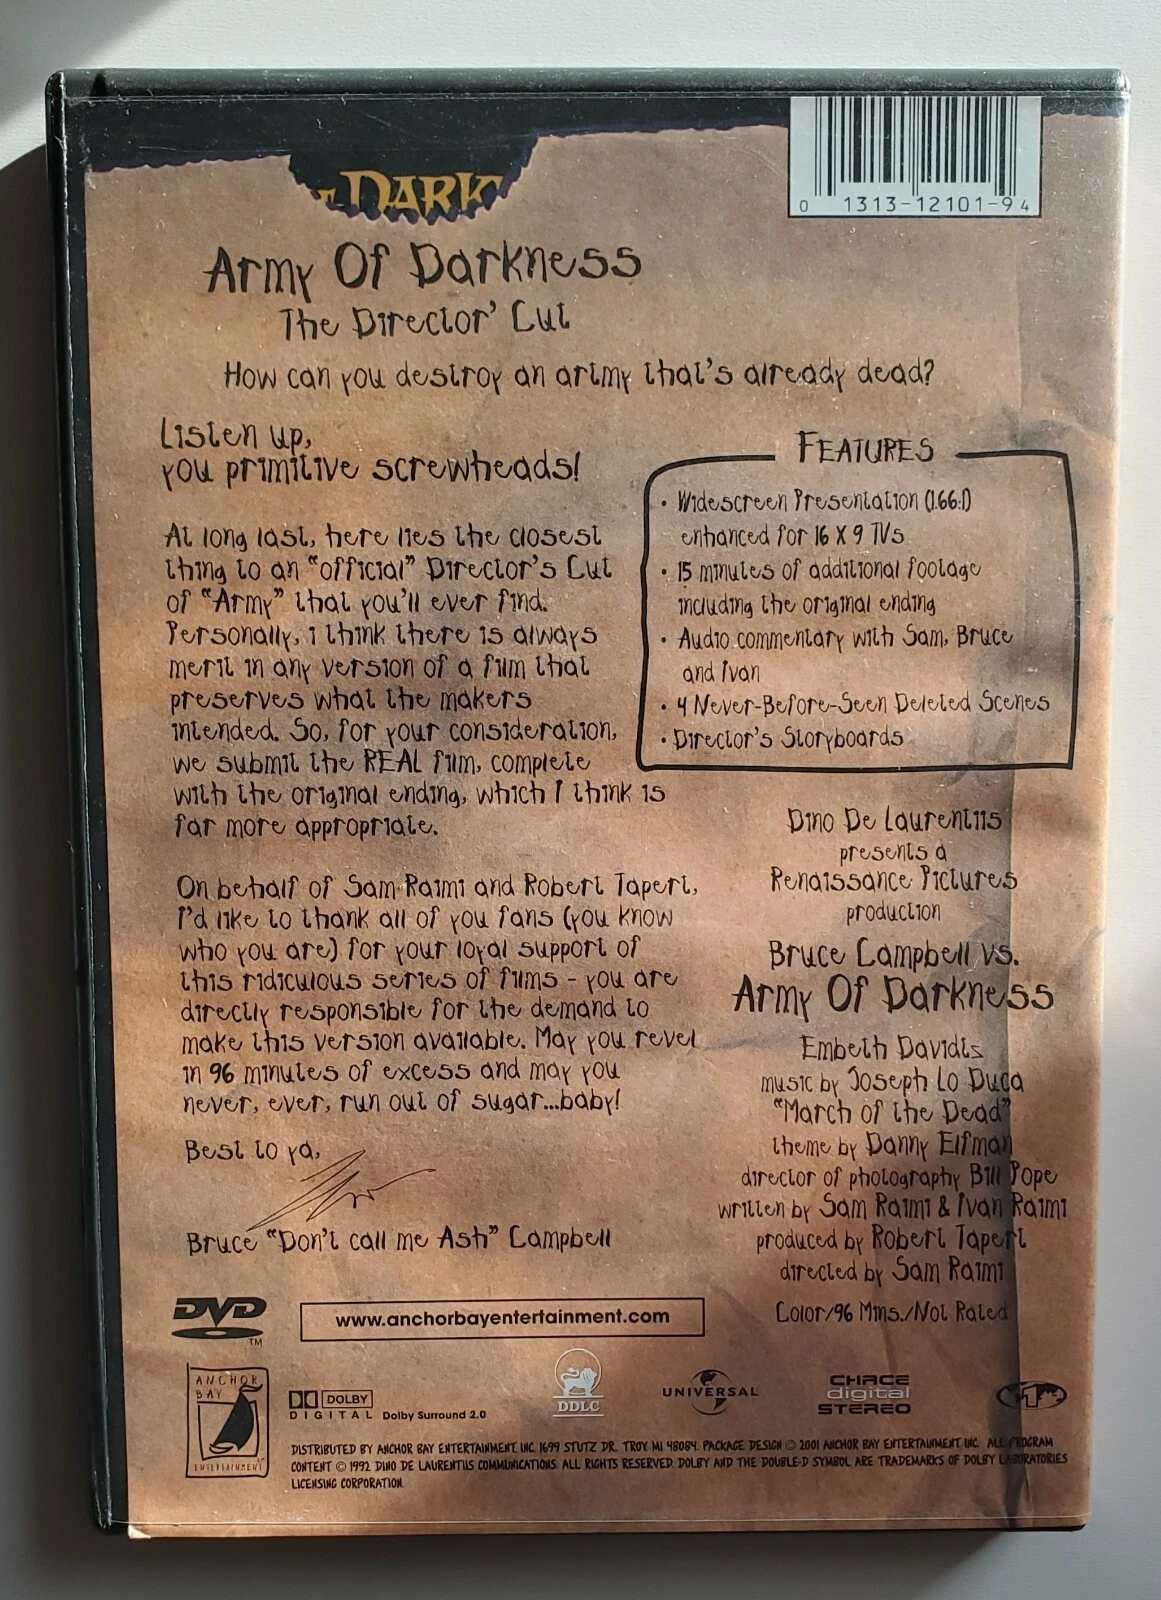 DARK
0 1313-12101-9 4
Army Of Darkness
The Director' Cut
How can you destroy an artmy that's already dead?
Listen up,
you primitive screwheads!
At long last, here lies the closest
thing to an "official" Director's Cut
of "Army" that you'll ever find.
Personally, i think there is always
merit in any version of a film that
preserves what the makers
intended. So, for your consideration,
we submit the REAL film, complete
with the original ending, which I think is
far more appropriate.
On behalf of Sam Raimi and Robert Tapert,
I'd like to thank all of you fans (you know
who you are) for your loyal support of
this ridiculous series of films - you are
directly responsible for the demand to
make this version available. May you revel
in 96 minutes of excess and may you
never, ever, run out of sugar...baby!
Best to ya,
Bruce "Don't call me Ash" Campbell
FEATURES
• Widescreen Presentation (1.66:1)
enhanced for 16 X 9 TVs
• 15 minutes of additional footage
including the original ending
• Audio commentary with Sam, Bruce
and Ivan
• 4 Never-Before-Seen Deleted Scenes
• Director's Storyboards
Dino De Laurentiis
presents a
Renaissance Pictures
production
Bruce Campbell vs.
Army Of Darkness
Embeth Davidts
music by Joseph Lo Duca
"March of the Dead"
theme by Danny Elfman
director of photography Bill Pope
written by Sam Raimi & Ivan Raimi
produced by Robert Tapert
directed by Sam Raimi
Color/96 Mins./Not Rated
DVD TM
www.anchorbayentertainment.com
ANCHOR
BAY
ENTERTAINMENT
DOLBY
DIGITAL Dolby Surround 2.0
DDLC
UNIVERSAL
CHACE
digital
STEREO
DISTRIBUTED BY ANCHOR BAY ENTERTAINMENT, INC. 1699 STUTZ DR. TROY, MI 48084. PACKAGE DESIGN © 2001 ANCHOR BAY ENTERTAINMENT INC. ALL PROGRAM
CONTENT © 1992 DINO DE LAURENTIIS COMMUNICATIONS. ALL RIGHTS RESERVED. DOLBY AND THE DOUBLE-D SYMBOL ARE TRADEMARKS OF DOLBY LABORATORIES
LICENSING CORPORATION.